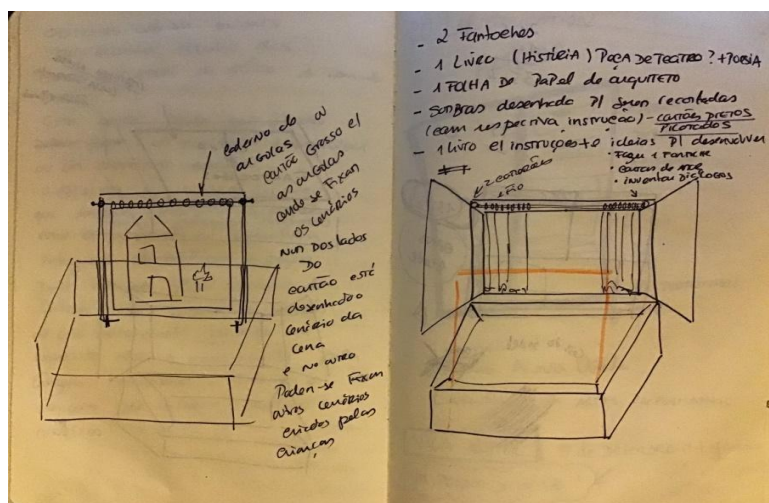 caderno de ou
argolas
cartão Grosso c/
as argolas
onde se Fixam
os cenários
Num Dos lados
Do
cartão está
desenhado o
cenário da
cena
e no outro
Podem-se Fixar
outros cenários
criados pelas
crianças
- 2 Fantoches
- 1 Livro (História) Peça De Teatro? + Poesia
- 1 FOLHA DE PaPel de arquiteto
- Sombras desenhado P/ serem recortadas
(com respectiva instrução) - cartões PRETOS
PICOTADOS
- 1 Livro c/ instruções + ideias P/ desenvolver
• Faça 1 Fantoche
• inventar Diálogos